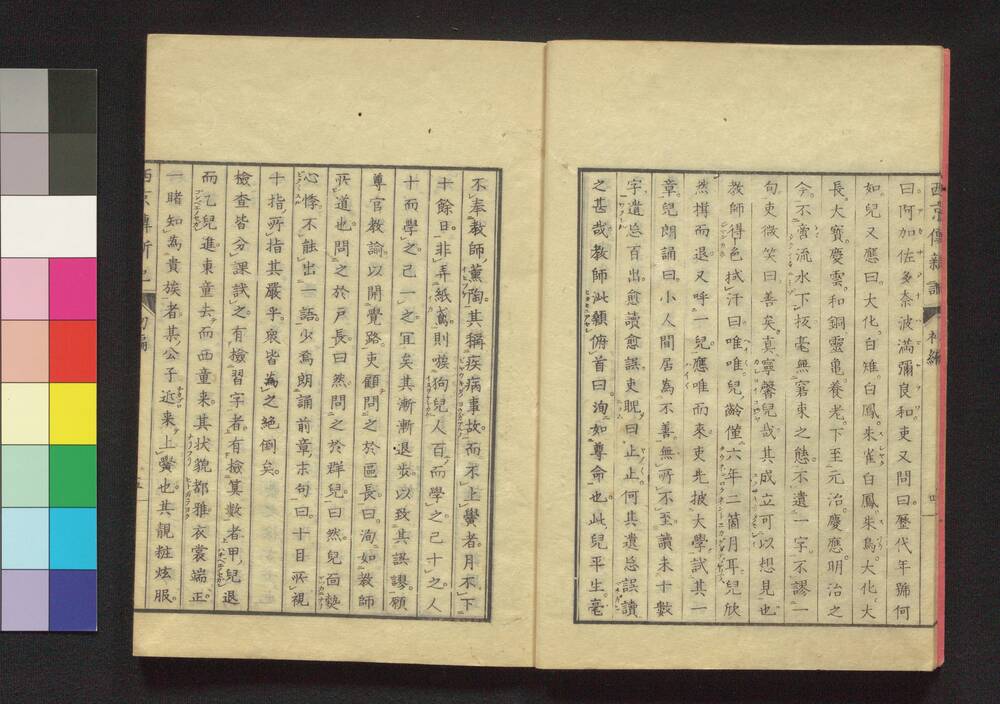 西京傳新記 初編 四
曰。阿加佐多奈波滿彌良和。吏又問曰。歷代年號何
如。兒又應曰。大化。白雉白鳳。朱雀白鳳。朱鳥。大化大
長。大寶。慶雲。和銅靈龜。養老。下至元治慶應。明治之
今。不啻流水下坂。毫無窘束之態。不遺一字不謬一
句。吏微笑曰。善矣。真寧馨兒哉。其成立可以想見也。
教師得色拭汗曰。唯唯。兒齡僅六年二箇月耳。兒欣
然揖而退。又呼一兒。應唯而來。吏先披大學試其一
章。兒朗誦曰。小人間居為不善。無所不至。讀未十數
字。遺忘百出。愈讀愈誤。吏睨曰。止止。何其遺忘誤讀
之甚哉。教師泚顙俯首曰。洵如尊命也。此兒平生。毫
不奉教師薰陶。其稱疾病事故。而不上黌者。月不下
十餘日。非弄紙鳶。則嗾狗兒。人百而學之己十之。人
十而學之己一之。宜矣其漸漸退步。以致其誤謬。願
尊官教諭。以開覺路。吏顧問之於區長。曰。洵如教師
所道也。問之於戶長。曰然。問之於群兒。曰然。兒面熱
心悸。不能出一語。少焉朗誦前章末句曰。十目所視
十指所指其嚴乎。衆皆為之絕倒矣。
檢查皆分課試之。有檢習字者。有檢算數者。甲兒退
而乙兒進。東童去。而西童來。其狀貌都雅。衣裳端正。
一睹知為貴族者。某公子近來上黌也。其靚粧炫服。
西京傳新記 初編 五